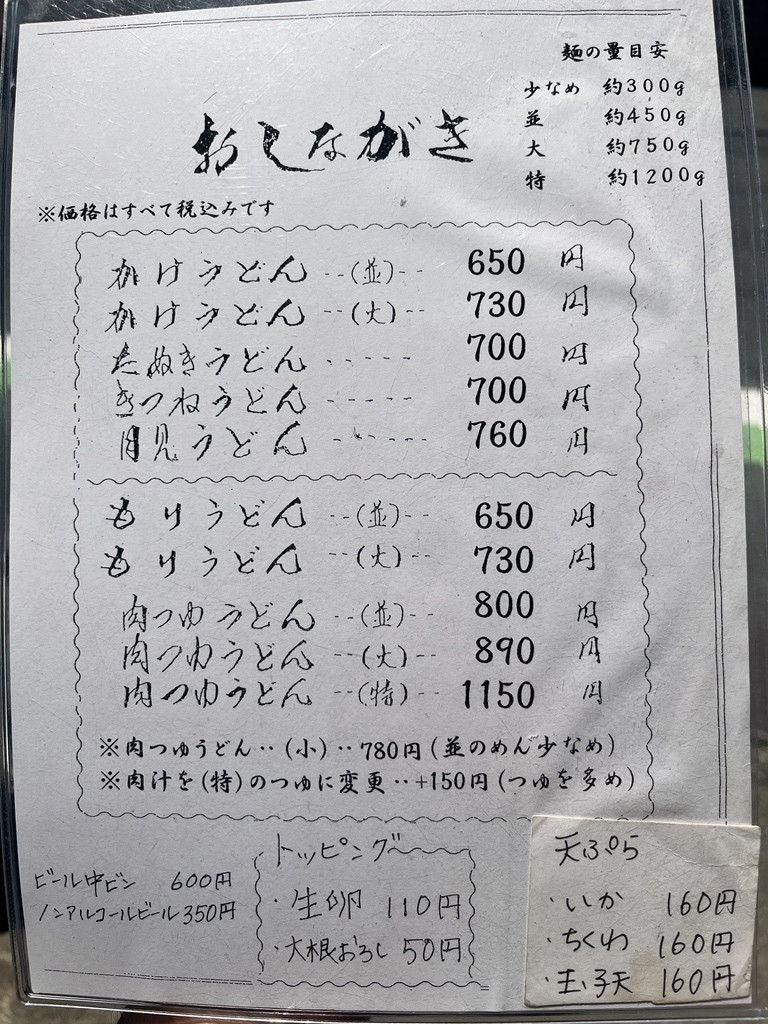 麺の量目安
少なめ 約300g
並 約450g
大 約750g
特 約1200g
おしながき
※価格はすべて税込みです
かけうどん --(並)-- 650 円
かけうどん --(大)-- 730 円
たぬきうどん ----- 700 円
きつねうどん ----- 700 円
月見うどん ----- 760 円
もりうどん --(並)-- 650 円
もりうどん --(大)-- 730 円
肉つゆうどん --(並)-- 800 円
肉つゆうどん --(大)-- 890 円
肉つゆうどん --(特)-- 1150 円
※肉つゆうどん‥(小)‥780円(並のめん少なめ)
※肉汁を(特)のつゆに変更‥+150円(つゆを多め)
ビール中ビン 600円
ノンアルコールビール350円
トッピング
・生卵 110円
・大根おろし 50円
天ぷら
・いか 160円
・ちくわ 160円
・玉子天 160円